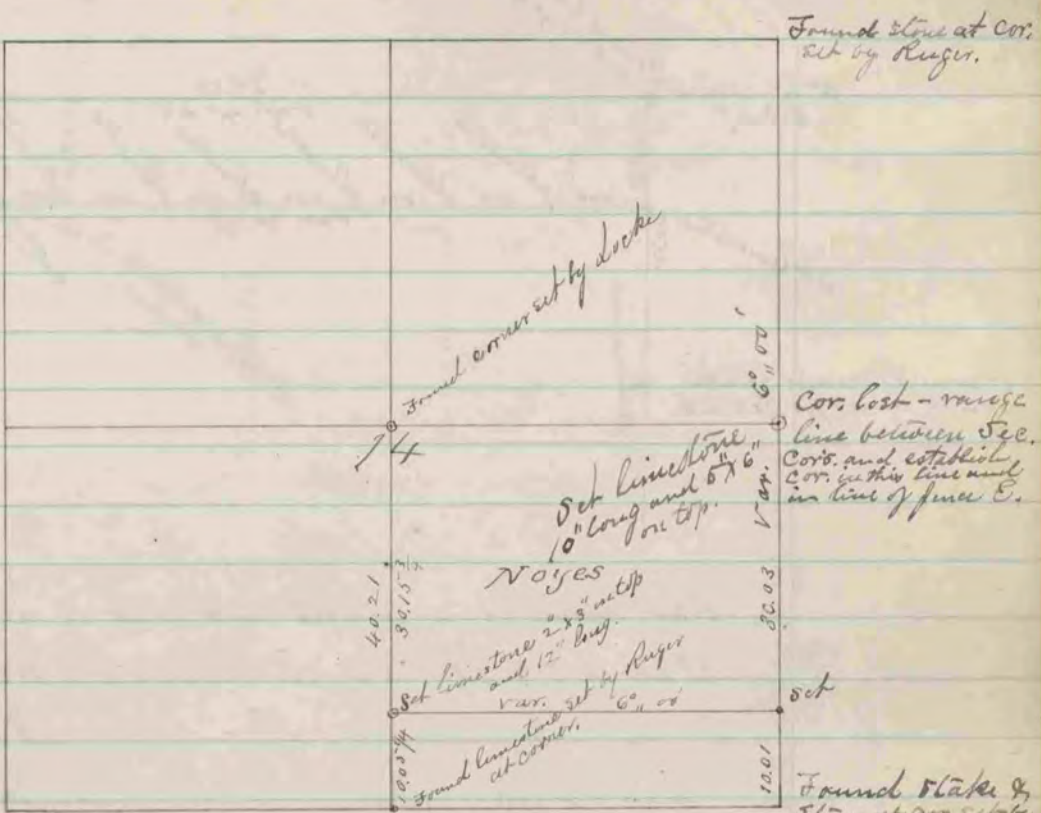 Found stone at cor.
set by Ruger.
Found corner set by Locke
14
Var. 6° 00'
Cor. lost - range
line between Sec.
Cors. and establish
cor. in this line and
in line of fence E.
Set limestone
10" long and 5" x 6"
on top.
Noyes
40.21
30.15 3/4
30.03
Set limestone 2" x 3" on top
and 12" long.
Var. 6° 00'
Set
Found limestone set by Ruger
at corner.
10.05 1/4
10.01
Found stake &